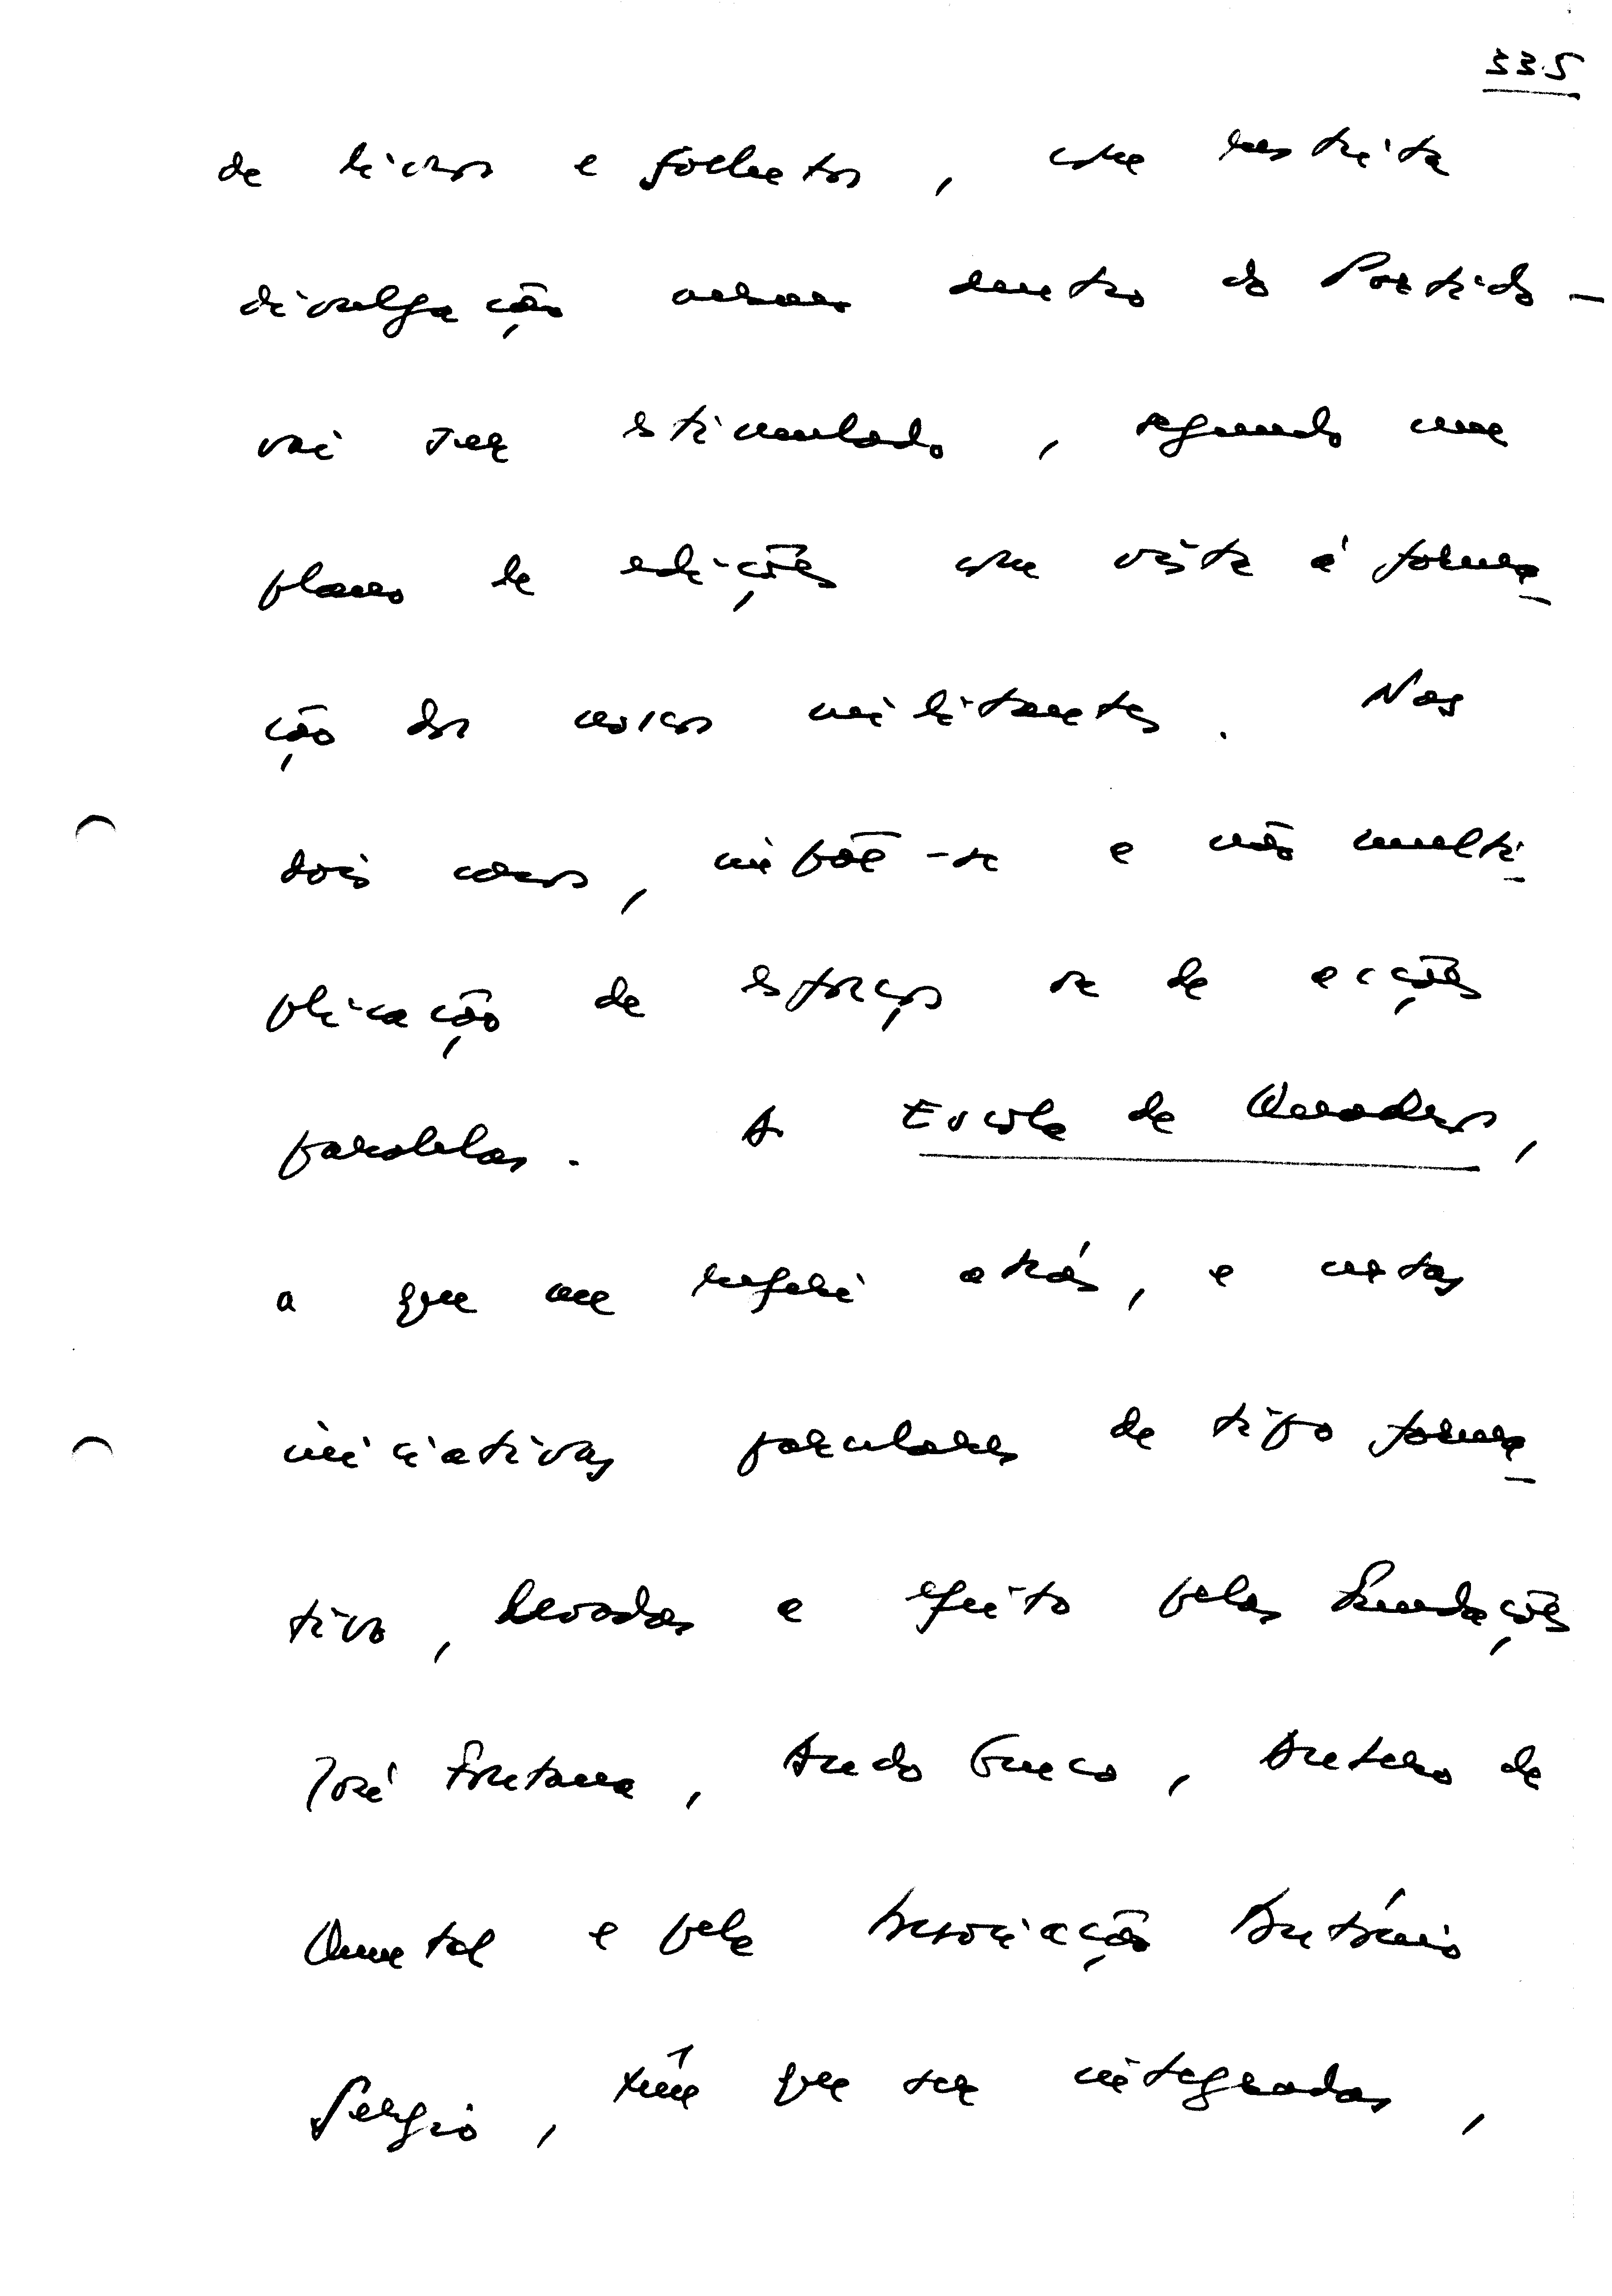 33.5
de livros e folhetos, com restrita
divulgação mesmo dentro do Partido —
vai ser estimulado, segundo um
plano de edições com vista à forma-
ção dos novos militantes. Nos
dois casos, impõe-se a não multi-
plicação de esforços ou de acções
paralelas. A Escola de Quadros,
a que me referi atrás, e certas
iniciativas parcelares de tipo forma-
tivo, levadas a efeito pelas Fundações
José Fontana, Azedo Gneco, Antero de
Quental e pela Associação António
Sérgio, têm que ser integradas,